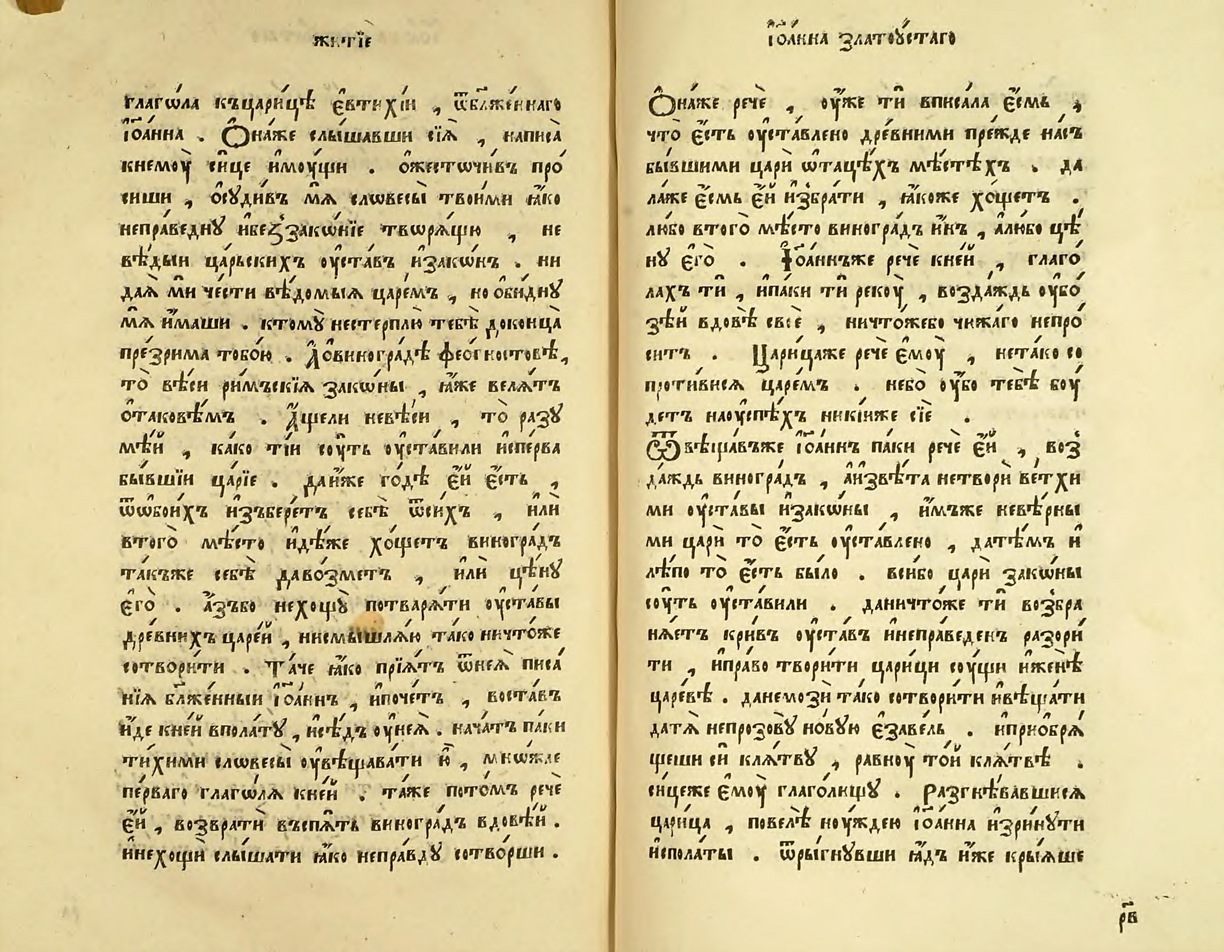 житїе
глаго́ла къцари́цѣ є҆втихі́и , ѿбл҃же́ннаго
і҆ѡа́нна . Ѻ҆на́же слы́шавши сїѧ̀ , написа̀
кнемоу̀ си́це и҆моу́щи . ѻ҆жесточи́въ про
сиши , ѻ҆сꙋди́въ мѧ̀ словесы̀ твои́ми ꙗ҆́ко
непра́веднꙋ и҆беззако́нїе творѧ́щꙋю , не
вѣ́дыи ца́рьскихъ оу҆ста́въ и҆зако́нъ . ни
даѧ̀ ми че́сти вѣ́домыѧ царе́мъ , но ѻ҆би́днꙋ
мѧ̀ и҆́маши . ктомꙋ̀ нестерплю̀ тебѐ доконца̀
презри́ма тобо́ю . Ѡ҆виногра́дѣ феогно́стовѣ,
то̀ вѣ́си ри́мьскїѧ зако́ны , ꙗ҆́же велѧ́тъ
ѻ҆таково́мъ . А҆́щели невѣ́си , то̀ разꙋ
мѣ́й , ка́ко ті́и соу́ть оу҆ста́вили и҆спе́рва
бы́вшїи ца́рїе . да и҆́же го́дѣ є҆́й є҆́сть ,
ѿѻ҆бои́хъ и҆зъбере́тъ себѣ̀ ѿси́хъ , и҆лѝ
втого̀ мѣ́сто и҆дѣ́же хо́щетъ виногра́дъ
та́къже себѣ̀ даво́зметъ , и҆лѝ цѣ́нꙋ
є҆гѡ̀ . а҆́зъбо нехощꙋ̀ потварѧ́ти оу҆ста́вы
дре́внихъ царе́й , нисмышлѧ́ю та́ко ничто́же
сотвори́ти . Та́че ꙗ҆́ко прїѧ́тъ ѿнеѧ̀ писа́
нїѧ бл҃же́нныи і҆ѡа́ннъ , и҆почётъ , воста́въ
и҆́де кне́й впола́тꙋ , и҆сѣ́дъ оу҆неѧ̀ . нача́тъ па́ки
ти́хими словесы̀ оу҆вѣщава́ти ю҆̀ , мно́жае
пе́рваго глаго́лѧ кне́й . та́же пото́мъ речѐ
є҆́й , возвратѝ въспѧ́ть виногра́дъ вдове́й .
и҆нехощѝ слы́шати ꙗ҆́ко непра́вдꙋ сотво́рши .
і҆ѡа́нна златоꙋ́стаго
Ѻ҆на́же речѐ , оу҆же тѝ вписа́ла є҆́смь ,
что̀ є҆́сть оу҆ста́влено дре́вними пре́жде на́съ
бы́вшими царѝ ѡ҆таце́хъ мѣ́стѣхъ . да
ла́же є҆́смь є҆́й и҆збра́ти , ꙗ҆́коже хо́щетъ .
лю́бо втого̀ мѣ́сто виногра́дъ и҆́нъ , а҆лю́бо цѣ́
нꙋ є҆гѡ̀ . І҆ѡа́ннъже речѐ кне́й , глаго́
лахъ тѝ , и҆па́ки тѝ рекоу̀ , возда́ждь оу҆́бо
зѣ́й вдовѣ̀ своѐ , ничто́жебо чꙋжа́го непро́
ситъ . Цари́цаже речѐ є҆моу̀ , нета́ко со
проти́висѧ царе́мъ . небо̀ оу҆́бо тебѣ̀ боу́
детъ наоу҆спѣ́хъ никі́иже сїѐ .
Ѿвѣща́въже і҆ѡа́ннъ па́ки речѐ є҆́й , воз
да́ждь виногра́дъ , а҆и҆звѣ́та нетворѝ ве́тхи
ми оу҆ста́вы и҆зако́ны , и҆́мъже невѣ́рны
ми царѝ то̀ є҆́сть оу҆ста́влено , да тѣ́мъ и҆
лѣ́по то̀ є҆́сть бы́ло . всибо царѝ зако́ны
соу́ть оу҆ста́вили . даничто́же тѝ возбра
нѧ́етъ кри́въ оу҆ста́въ и҆непра́веденъ разори́
ти , и҆пра́во твори́ти цари́ци соу́щи и҆женѐ
царе́вѣ . данемозѝ та́ко сотвори́ти и҆вѣща́ти
датѧ̀ непрозовꙋ̀ но́вꙋю є҆заве́ль . и҆приѻ҆брѧ́
щеши сѝ клѧ́твꙋ , равноу̀ то́й клѧ́твѣ .
си́цеже є҆моу̀ глаго́лющꙋ . Разгнѣ́вавшисѧ
цари́ца , повелѣ̀ ноу́ждею і҆ѡа́нна и҆зри́нꙋти
и҆спола́ты . ѿры́гнꙋвши ꙗ҆́дъ и҆́же кры́ѧше
рв҃